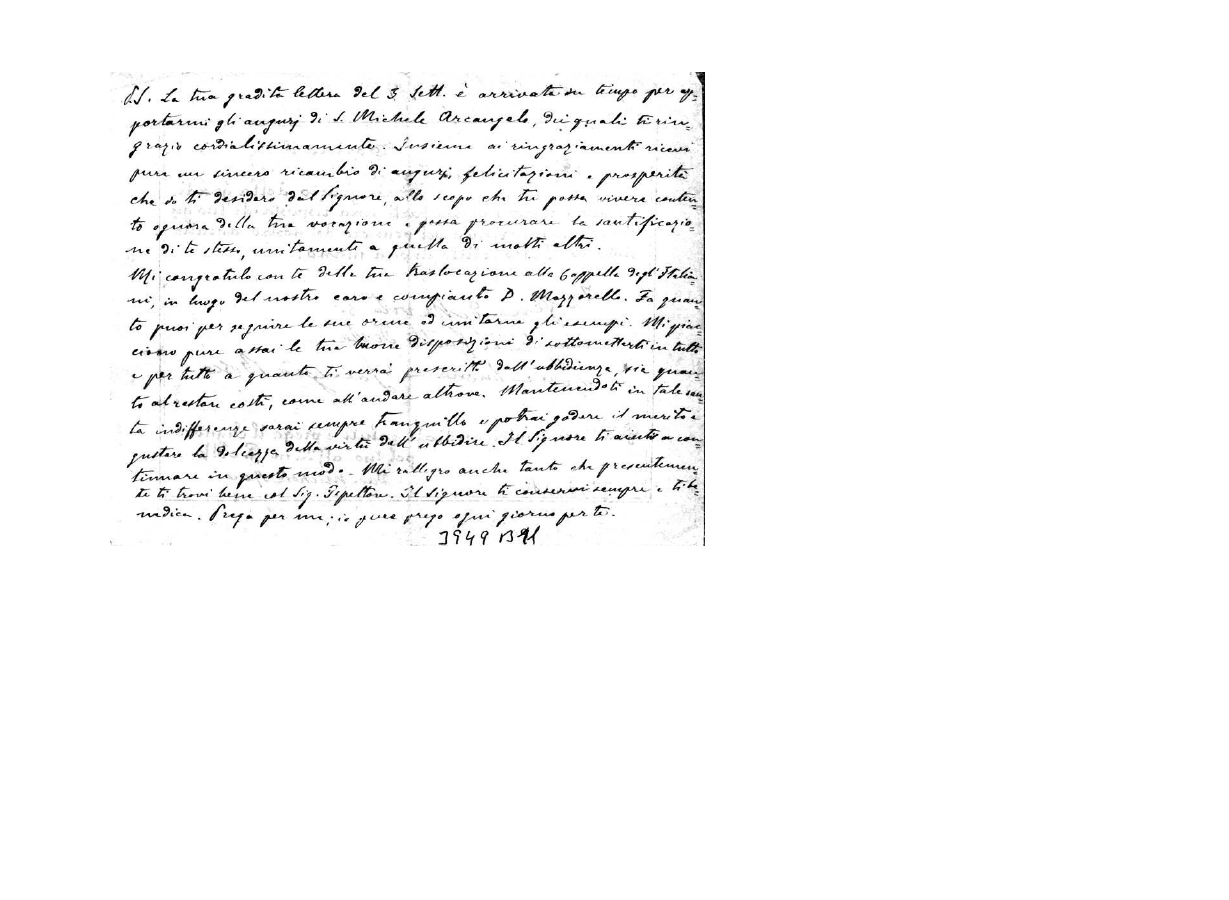 P.S. La tua gradita lettera del 3 Sett. è arrivata in tempo per ap=
portarmi gli augurj di S. Michele Arcangelo, dei quali ti rin=
grazio cordialissimamente. Insieme ai ringraziamenti ricevi
pure un sincero ricambio di augurj, felicitazioni e prosperità
che io ti desidero dal Signore, allo scopo che tu possa vivere conten=
to ognora della tua vocazione e possa procurare la santificazio=
ne di te stesso, unitamente a quella di molti altri.
Mi congratulo con te della tua traslocazione alla Cappella degl'Italia=
ni, in luogo del nostro caro e compianto D. Mazzarello. Fa quan=
to puoi per seguire le sue orme ed imitarne gli esempi. Mi piac=
ciono pure assai le tue buone disposizioni di sottometterti in tutto
e per tutto a quanto ti verrà prescritto dall'ubbidienza, sia quan=
to al restare costì, come all'andare altrove. Mantenendoti in tale san=
ta indifferenza sarai sempre tranquillo e potrai godere il merito e
gustare la dolcezza della virtù dell'ubbidire. Il Signore ti aiuti a con=
tinuare in questo modo. Mi rallegro anche tanto che presentemen=
te ti trovi bene col Sig. Il Signore ti conservi sempre e ti be=
nedica. Prega per me; io pure prego ogni giorno per te.
3949 B